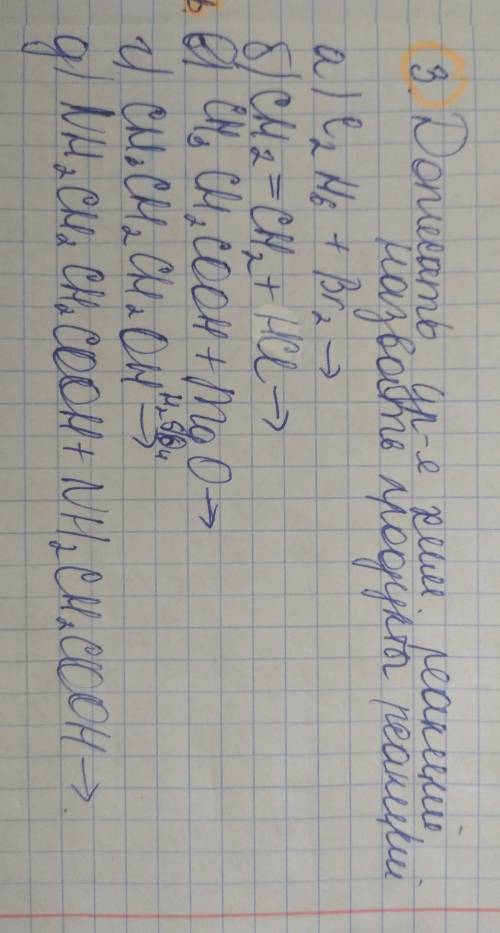 3 Дописать ур-я хим. реакций
назвать продукты реакций
а) C₂H₆ + Br₂ →
б) CH₂=CH₂ + HCl →
в) CH₃CH₂COOH + MgO →
г) CH₃CH₂CH₂OH H₂SO₄ →
д) NH₂CH₂CH₂COOH + NH₂CH₂COOH →